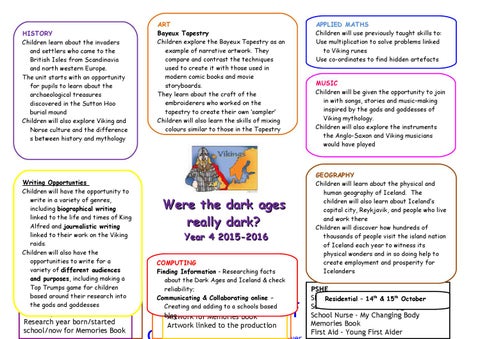 HISTORY
Children will learn about the invaders
and settlers who came to the
British Isles from Scandinavia
and north western Europe.
The unit starts with an opportunity
for pupils to learn about the
archaeological treasures
discovered in the Sutton Hoo
burial mound
Children will also explore Viking and
Norse culture and the difference
s between history and mythology
Writing Opportunties
Children will have the opportunity to
write in a variety of genres,
including biographical writing
linked to the life and times of King
Alfred and journalistic writing
linked to their work on the Viking
raids.
Children will also have the
opportunities to write for a
variety of different audiences
and purposes, including making a
Top Trumps game for children
based around their research into
the gods and goddesses
Research year born/started
school/now for Memories Book
ART
Bayeux Tapestry
Children explore the Bayeux Tapestry as an
example of narrative artwork. They
compare and contrast the techniques
used to create it with those used in
modern comic books and movie
storyboards.
They learn about the craft of the
embroiderers who worked on the
tapestry to create their own 'sampler'
Children will also learn the skills of mixing
colours similar to those in the Tapestry
Vikings
Were the dark ages
really dark?
Year 4 2015-2016
COMPUTING
Finding Information - Researching facts
about the Dark Ages and Iceland & check
reliability;
Communicating & Collaborating online –
Creating and adding to a schools based
blog
Artwork for Memories Book
Artwork linked to the production
APPLIED MATHS
Children will use previously taught skills to:
Use multiplication to solve problems linked
to Viking runes
Use co-ordinates to find hidden artefacts
MUSIC
Children will be given the opportunity to join
in with songs, stories and music-making
inspired by the gods and goddesses of
Viking mythology.
Children will also explore the instruments
the Anglo-Saxon and Viking musicians
would have played
GEOGRAPHY
Children will learn about the physical and
human geography of Iceland. The
children will also learn about Iceland's
capital city, Reykjavik, and people who live
and work there
Children will discover how hundreds of
thousands of people visit the island nation
of Iceland each year to witness its
physical wonders and in so doing help to
create employment and prosperity for
Icelanders
PSHE
Residential – 14th & 15th October
School Nurse - My Changing Body
Memories Book
First Aid - Young First Aider